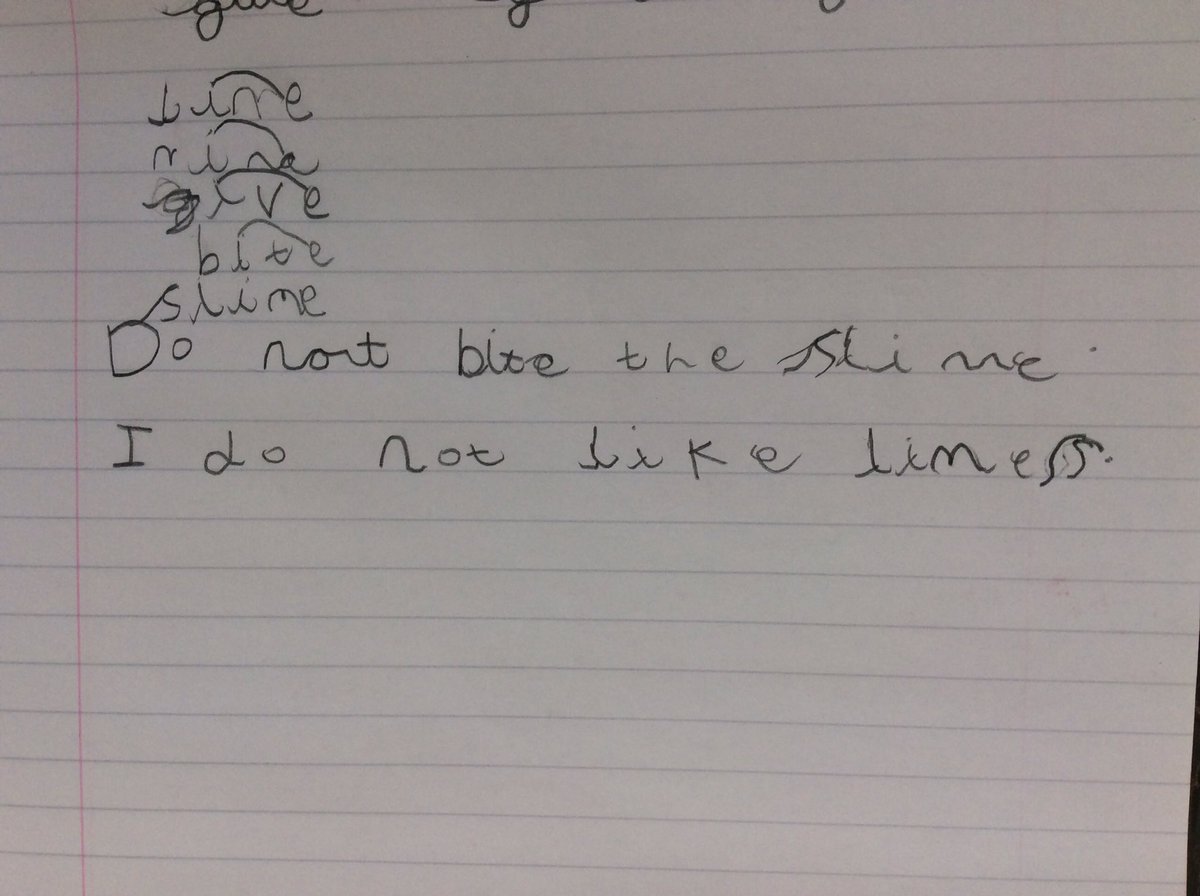 time
nine
give
bite
slime
Do not bite the slime.
I do not like limes.